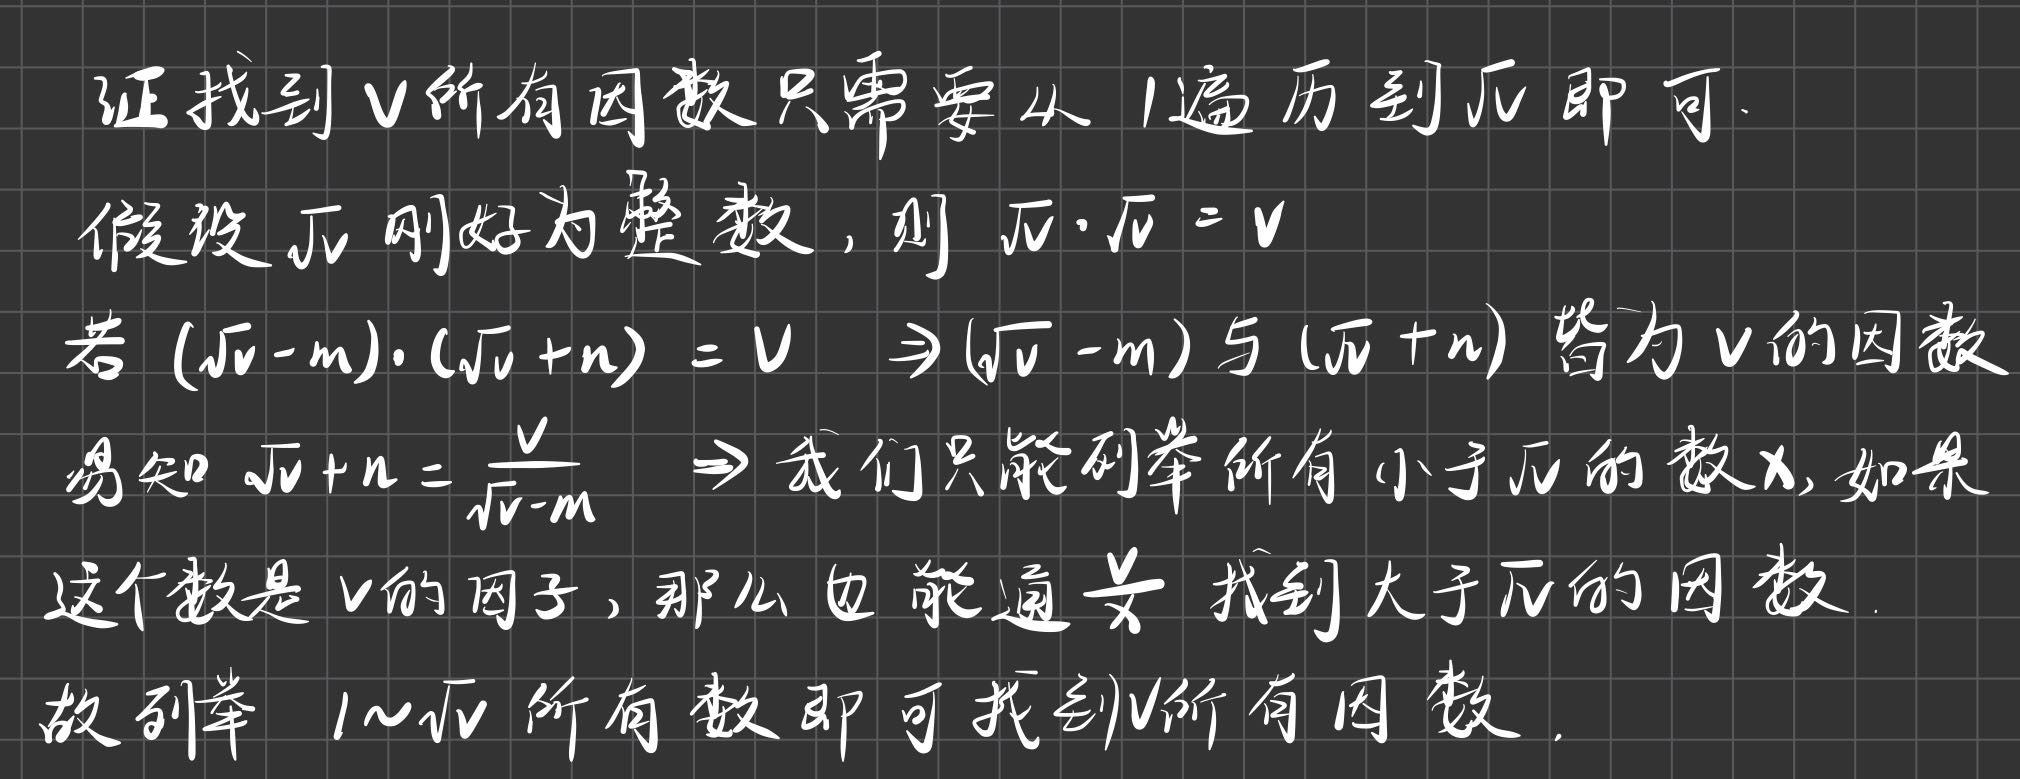 证找到 V 所有因数只需要从 1遍历到√V 即可.
假设 √V 刚好为整数, 则 √V·√V = V
若 (√V-m)·(√V+n) = V ⇒ (√V-m) 与 (√V+n) 皆为 V 的因数
易知 √V+n = V/(√V-m) ⇒ 我们只能列举所有小于√V的数X, 如果
这个数是 V的因子, 那么也能通 V/X 找到大于√V的因数.
故列举 1~√V 所有数即可找到V所有因数.